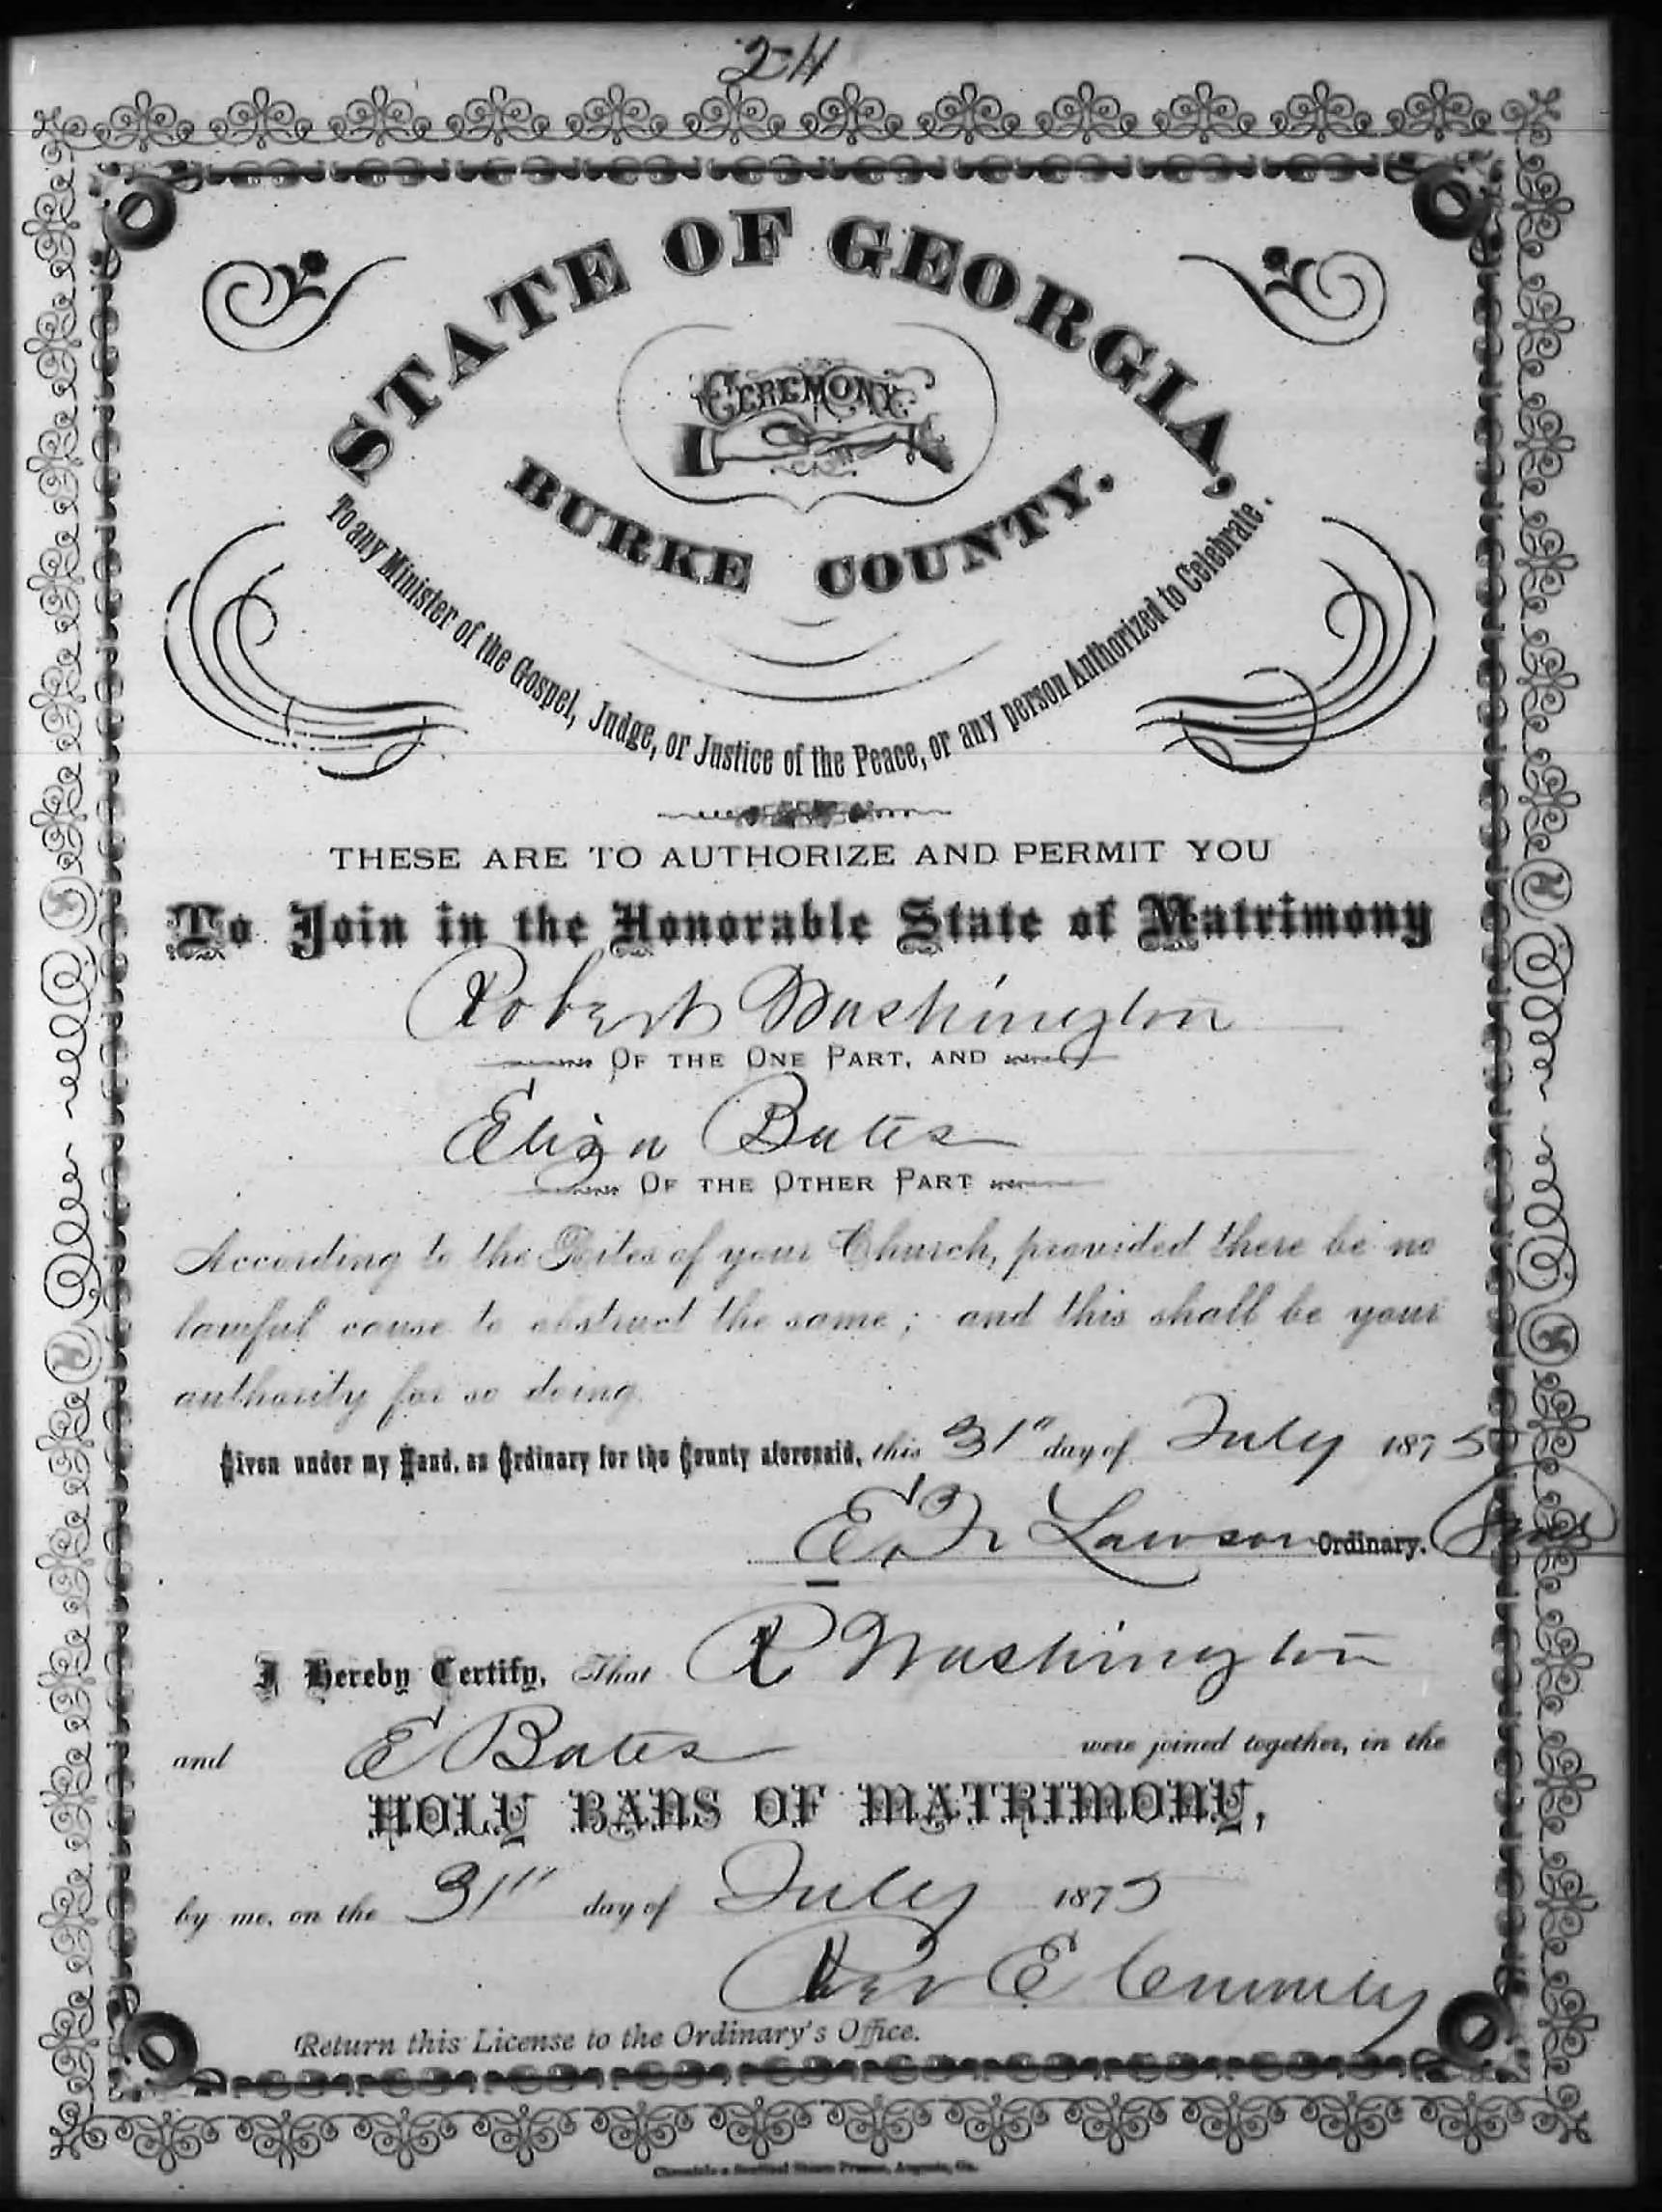 24
STATE OF GEORGIA,
CEREMONY
BURKE COUNTY.
To any Minister of the Gospel, Judge, or Justice of the Peace, or any person Authorized to Celebrate.
THESE ARE TO AUTHORIZE AND PERMIT YOU
To Join in the Honorable State of Matrimony
Robert Washington
OF THE ONE PART, AND
Eliza Bates
OF THE OTHER PART
According to the Rites of your Church, provided there be no
lawful cause to obstruct the same; and this shall be your
authority for so doing.
Given under my Hand, as Ordinary for the County aforesaid, this 31" day of July 1875
E. F. Lawson Ordinary.
I Hereby Certify, That R Washington
and E Bates were joined together, in the
HOLY BANS OF MATRIMONY,
by me, on the 31" day of July 1875
Rev E Crumley
Return this License to the Ordinary's Office.
Chronicle & Sentinel Steam Presses, Augusta, Ga.